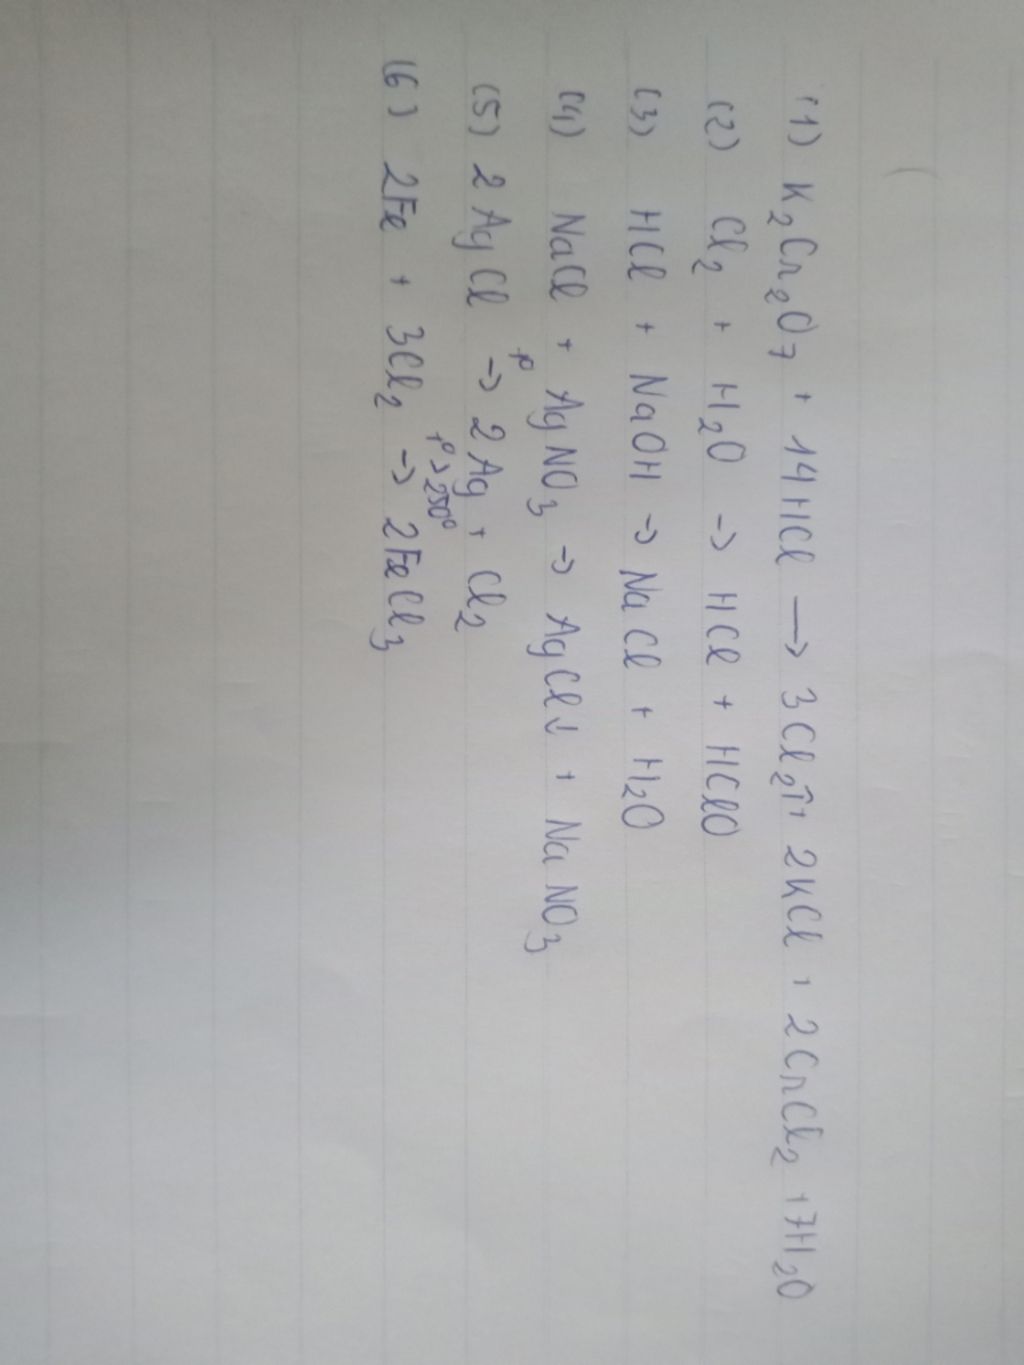 (1) K₂Cr₂O₇ + 14HCl → 3Cl₂↑ + 2KCl + 2CrCl₂ + 7H₂O
(2) Cl₂ + H₂O → HCl + HClO
(3) HCl + NaOH → NaCl + H₂O
(4) NaCl + AgNO₃ → AgCl↓ + NaNO₃
t°
(5) 2AgCl → 2Ag + Cl₂
t° > 250°
(6) 2Fe + 3Cl₂ → 2FeCl₃